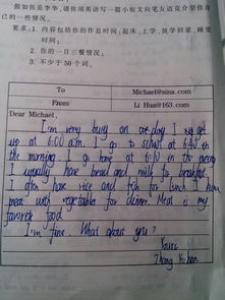 假如你是李华,请你用英语写一篇小短文向笔友迈克介绍你自
己的一些情况。
要求:1. 内容包括你的作息时间:起床、上学、放学回家、睡觉
时间;
2. 你的一日三餐情况;
3. 不少于50个词。
To Michael@sina.com
From Li Hua@163.com
Dear Michael,
I'm very busy on day I get
up at 6:00 a.m. I go to school at in
the morning. I go home at 6:10 in the
I usually have bread and milk for breakfast.
I often have rice and fish for lunch I have
meat with vegetables for dinner. Meat is my
favorite food
I'm fine. What about you?
Yours
Zhang